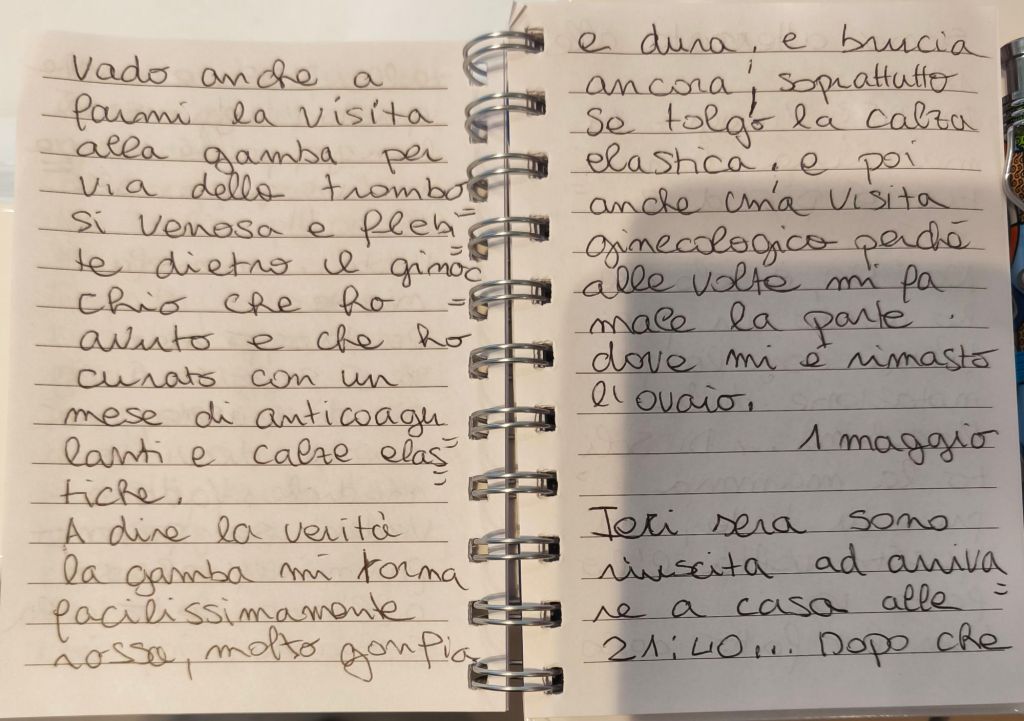 Vado anche a
farmi la visita
alla gamba per
via della trombo
si venosa e flebi=
te dietro il ginoc
chio che ho =
avuto e che ho
curato con un
mese di anticoagu
lanti e calze elas=
tiche.
A dire la verità
la gamba mi torna
facilissimamente
rossa, molto gonfia
e dura, e brucia
ancora, soprattutto
se tolgo la calza
elastica, e poi
anche una visita
ginecologico perchè
alle volte mi fa
male la parte
dove mi è rimasto
l'ovaio.
1 maggio
Ieri sera sono
riuscita ad arriva
re a casa alle =
21:40... Dopo che